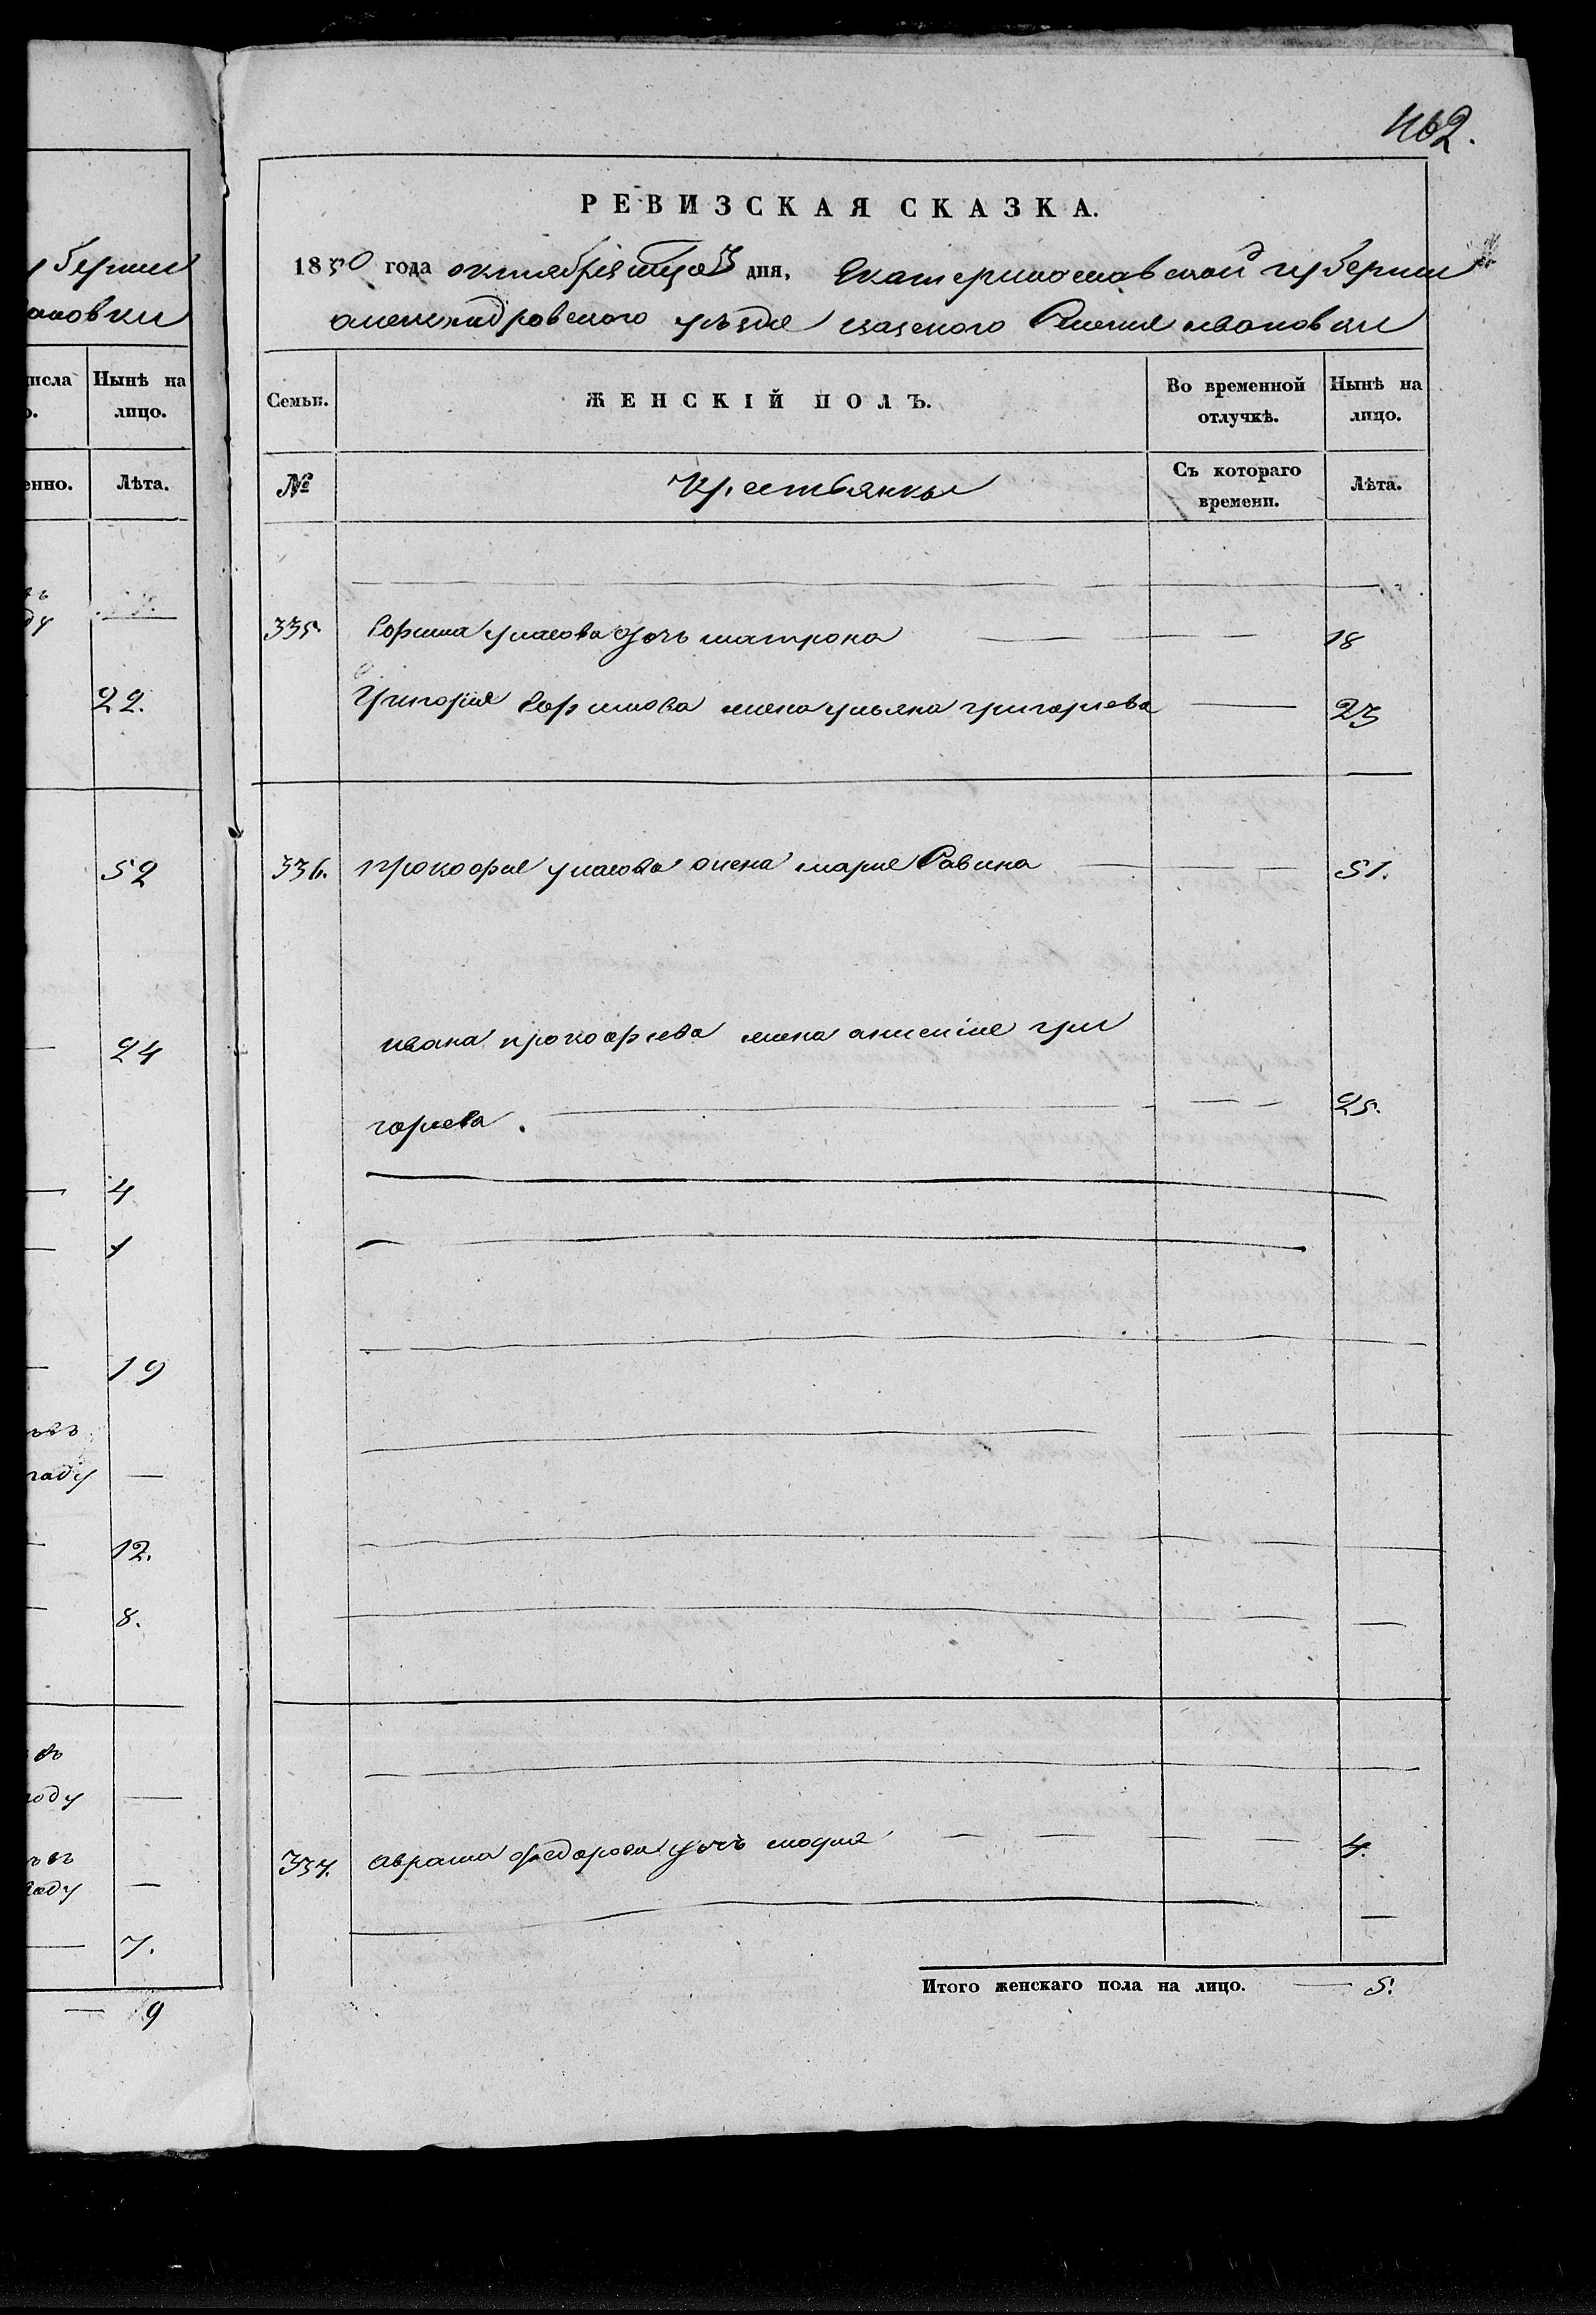 462.
РЕВИЗСКАЯ СКАЗКА.
1850 года октября дня, Екатеринославской губернии
александровского уезда казеного Селения ивановки
Семьи. ЖЕНСКІЙ ПОЛЪ. Во временной отлучкѣ. Нынѣ на лицо.
№ Крестьянки Съ котораго времени. Лѣта.
335. Ефима дочь матрона 18
Григория Ефимова жена ульяна григорьева 23
336. Прокофия жена мария Савина 51.
ивана прокофиева жена анисия гри
гориева. 25.
337. аврама федорова дочь 4.
Итого женскаго пола на лицо. 5.
губернии
ановки
исла Нынѣ на лицо.
енно. Лѣта.
22.
52
24
4
1
19
12.
8.
7.
9